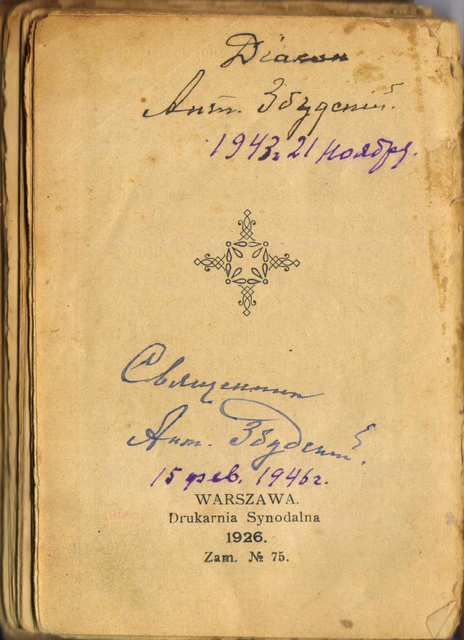 Діакон
Ант. Збудскій.
1943г 21 ноября.
Священник
Ант. Збудскій.
15 фев. 1946г.
WARSZAWA.
Drukarnia Synodalna
1926.
Zam. № 75.